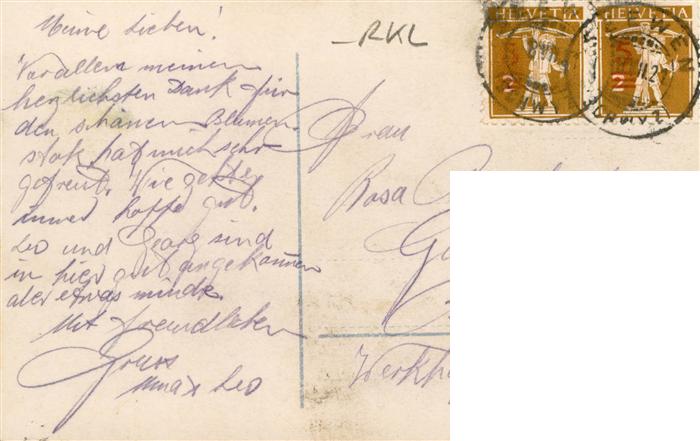 Meine Lieben!
Vor allem meinen
herzlichsten Dank für
den schönen Blumen-
stok, hat mich sehr
gefreut. Wie geht es
immer hoffe gut.
Leo und Georg sind
in hier gut angekommen
aber etwas müde.
Mit freundlichen
Gruss
Leo
-RKL
HELVETIA
HELVETIA
Frau
Rosa